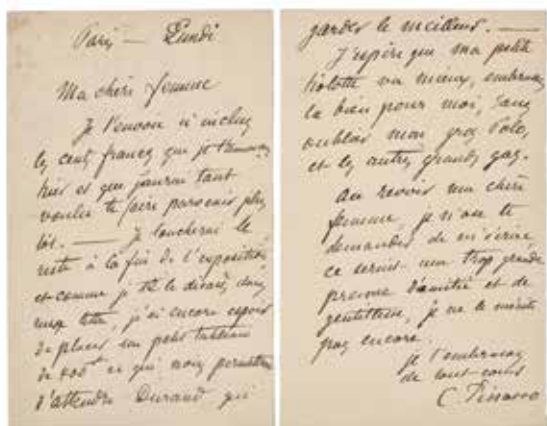 Paris — Lundi
Ma chère femme
Je t'envoie ci inclus
les cent francs que je
hier et que j'aurai tant
voulu te faire parvenir plus
tôt. — Je toucherai le
reste à la fin de l'exposition
et comme je te le disais, dans
ma lettre, j'ai encore espoir
de placer un petit tableau
de ce qui nous permettra
d'attendre Durand qui
garder le meilleur. —
J'espère que ma petite
va mieux, embrasse
la bien pour moi, sans
oublier mon gros
et les autres grands gas.
Au revoir ma chère
femme, je n'ose te
demander de m'écrire,
ce serait une trop grande
preuve d'amitié et de
gentillesse, je ne le mérite
pas encore.
je t'embrasse
de tout cœur
C. Pissarro